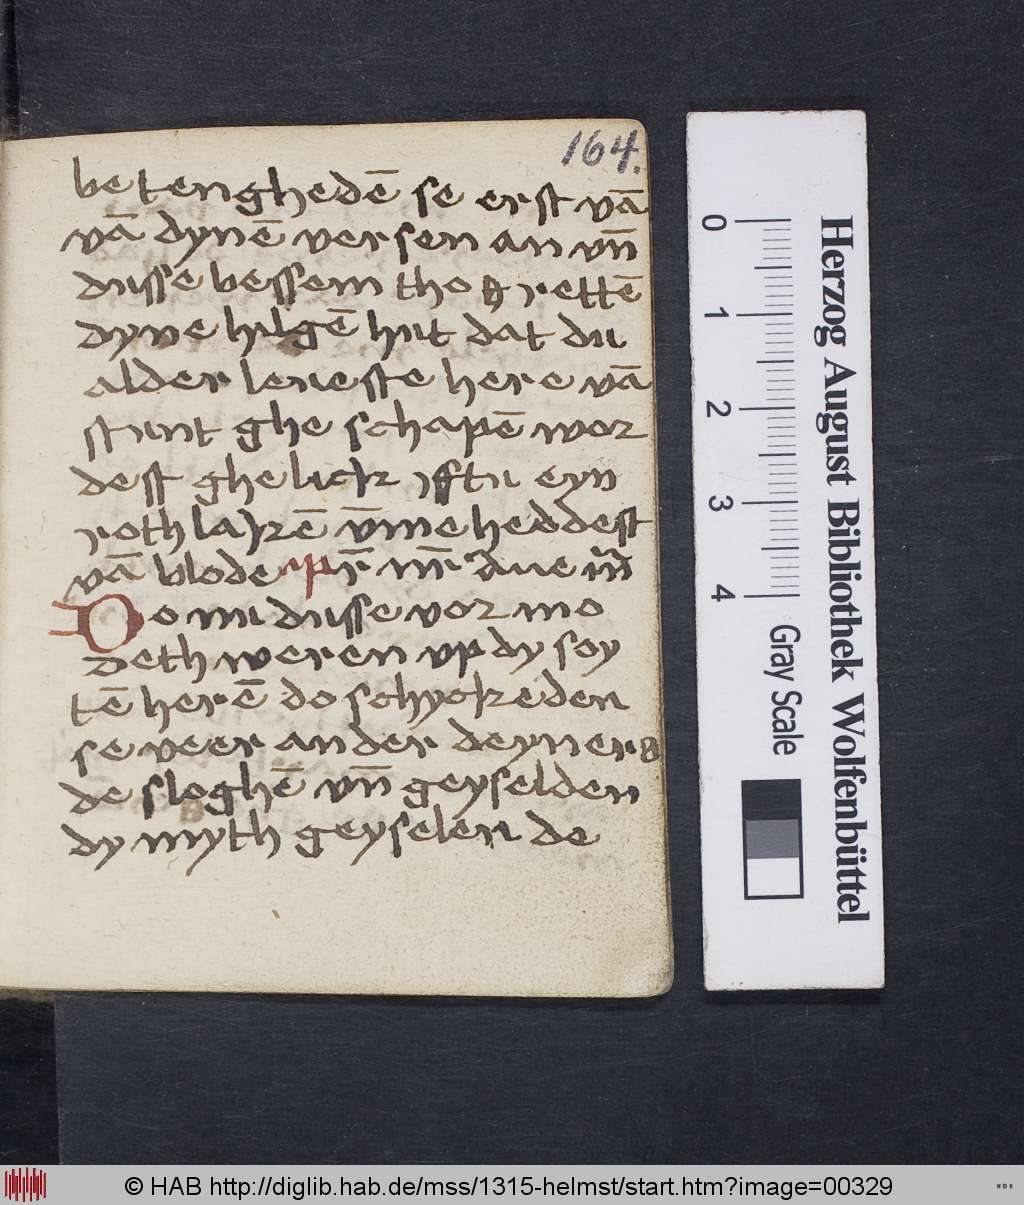 164.
betenghedē se erst vā
vā dynē versen an vn̄
dusse bessem tho rettē
dyne hilgē hut dat du
alder leueste here vā
stunt ghe schapē wor
dest ghe lick yftu eyn
roth lakē v̄me heddest
vā blode pr̄ nr̄ aue mͣ
Do nu dusse vor mo
deth weren vp dy soy
tē herē do schycke den
se veer ander deyner
de sloghē vn̄ geyselden
dy myth geyselen de
Herzog August Bibliothek Wolfenbüttel
0 1 2 3 4 Gray Scale
© HAB http://diglib.hab.de/mss/1315-helmst/start.htm?image=00329